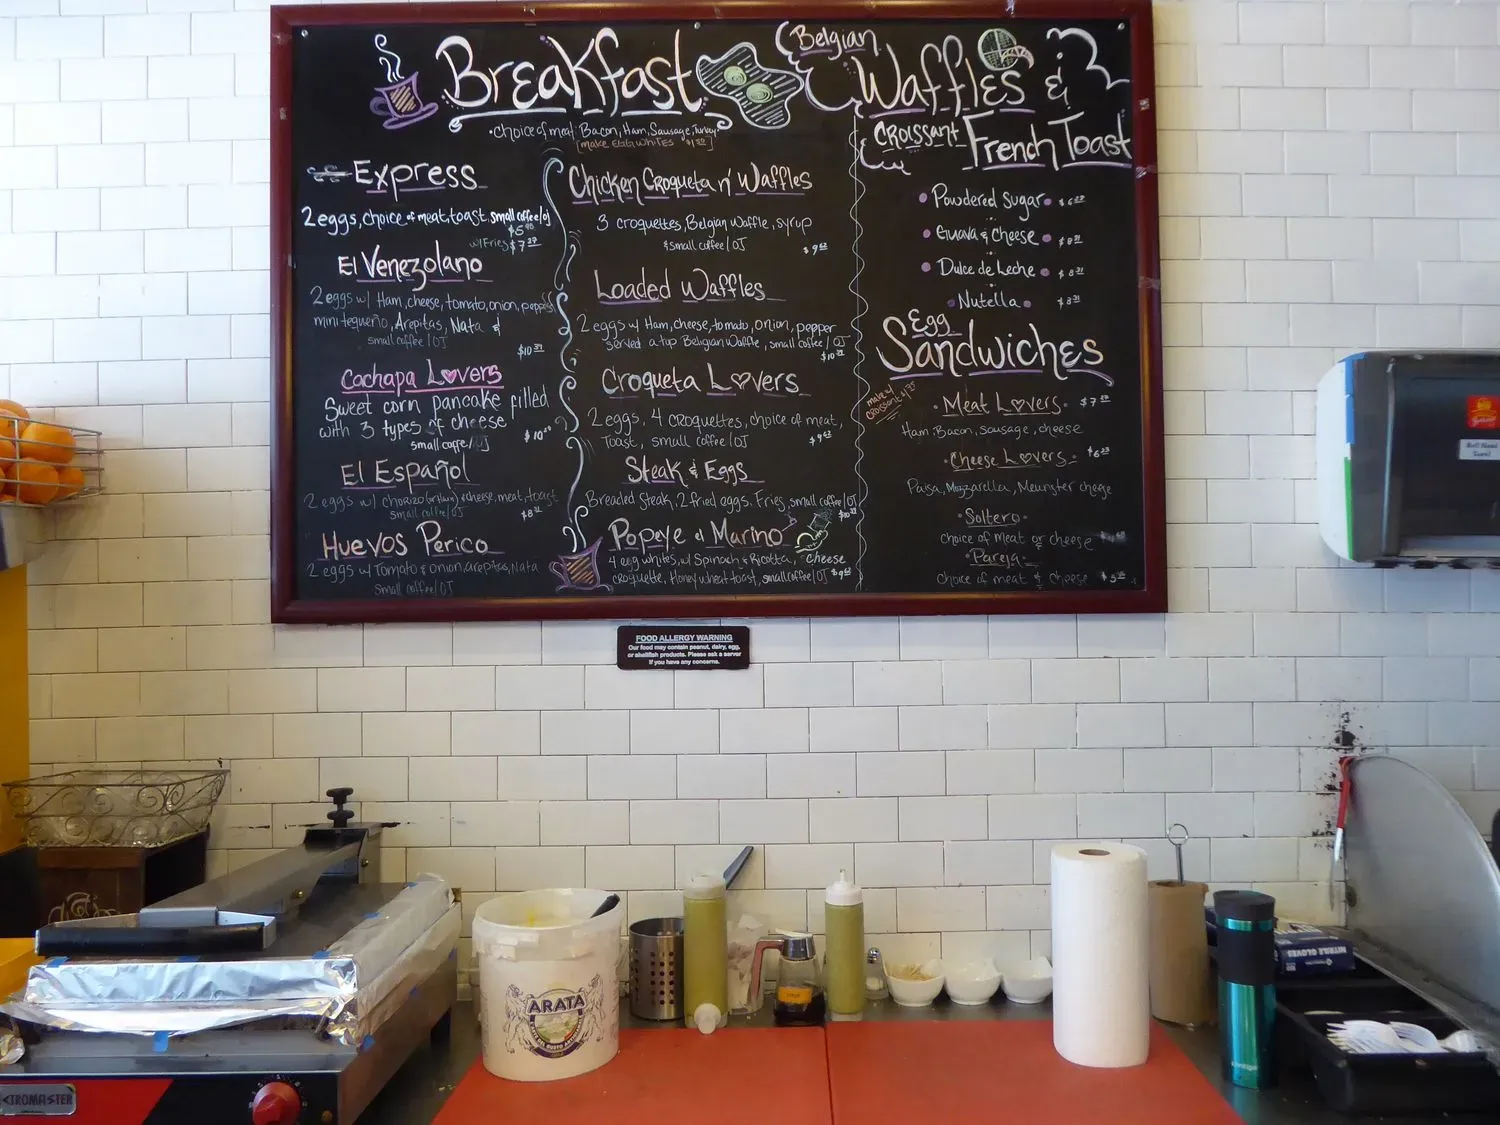 Breakfast
• choice of meat: Bacon, Ham, Sausage, Turkey
[make Egg Whites $1.50]
Express
2 eggs, choice of meat, toast, small coffee/OJ
w/Fries $7
El Venezolano
2 eggs w/ Ham, cheese, tomato, onion, peppers,
mini tequeño, Arepitas, Nata &
small coffee/OJ
$10
Cachapa Lovers
Sweet corn pancake filled
with 3 types of cheese
small coffee/OJ
$10
El Español
2 eggs w/ chorizo & cheese, meat, toast
small coffee/OJ
$8
Huevos Perico
2 eggs w/ Tomato & onion, arepitas, Nata
small coffee/OJ
Chicken Croqueta n' Waffles
3 croquettes, Belgian Waffle, syrup
& small coffee/OJ
$9
Loaded Waffles
2 eggs w/ Ham, cheese, tomato, onion, pepper
served atop Belgian Waffle, small coffee/OJ
$10
Croqueta Lovers
2 eggs, 4 croquettes, choice of meat,
Toast, small coffee/OJ
$9
Steak & Eggs
Breaded Steak, 2 fried eggs, Fries, small coffee/OJ
Popeye el Marino
4 egg whites, w/ Spinach & Ricotta, cheese
croquette, Honey wheat toast, small coffee/OJ
Belgian
Waffles &
Croissant French Toast
• Powdered Sugar •
• Guava & Cheese • $8
• Dulce de Leche • $8
• Nutella • $8
Egg
Sandwiches
make w/
croissant
• Meat Lovers • $7
Ham, Bacon, sausage, cheese
• Cheese Lovers • $6
Paisa, Mozzarella, Meunster cheese
• Soltero •
choice of meat or cheese
• Pareja •
choice of meat & cheese $5
FOOD ALLERGY WARNING
Our food may contain peanut, dairy, egg,
or shellfish products. Please ask a server
if you have any concerns.
ARATA
NITRILE GLOVES
CTROMASTER